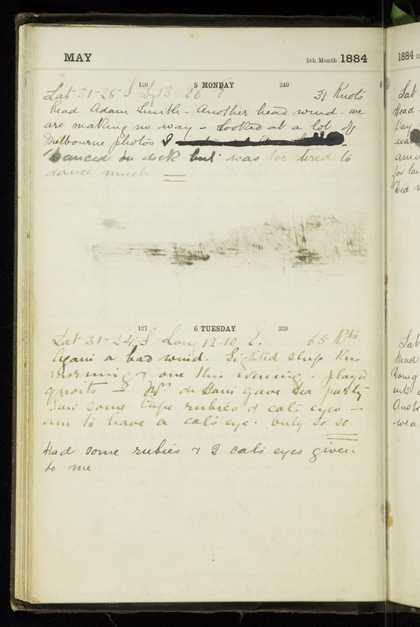 MAY 5th Month 1884
5 MONDAY 240
31 Knots
Read Adam Smith - Another head wind - we
are making no way - Looked at a lot of
Melbourne photos
Danced on deck but was too tired to
dance much
127 6 TUESDAY 239
Lat 31-24 S Long 12-10 E. 65 Kts
Again a head wind. Sighted ship this
morning & one this evening - played
quoits - Mrs de gave tea party
Saw some Cape rubies & cat's eyes -
am to have a cat's eye. Only so so
Had some rubies & 2 cat's eyes given
to me
1884